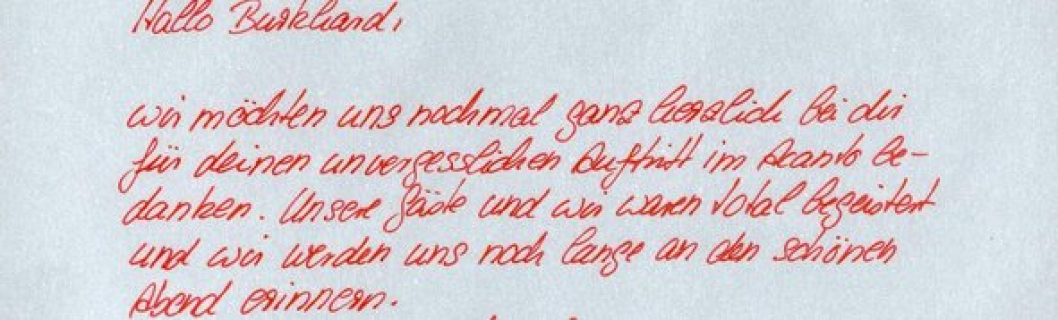 Hallo Burkhard,
wir möchten uns nochmal ganz herzlich bei dir
für deinen unvergesslichen Auftritt im Acanto be-
danken. Unsere Gäste und wir waren total begeistert
und wir werden uns noch lange an den schönen
Abend erinnern.